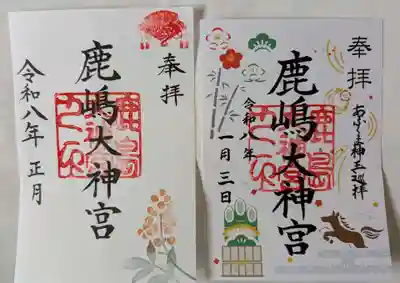 奉拝
鹿嶋大神宮
令和八年 正月
奉拝
あぶくま神玉巡拝
鹿嶋大神宮
令和八年
一月三日